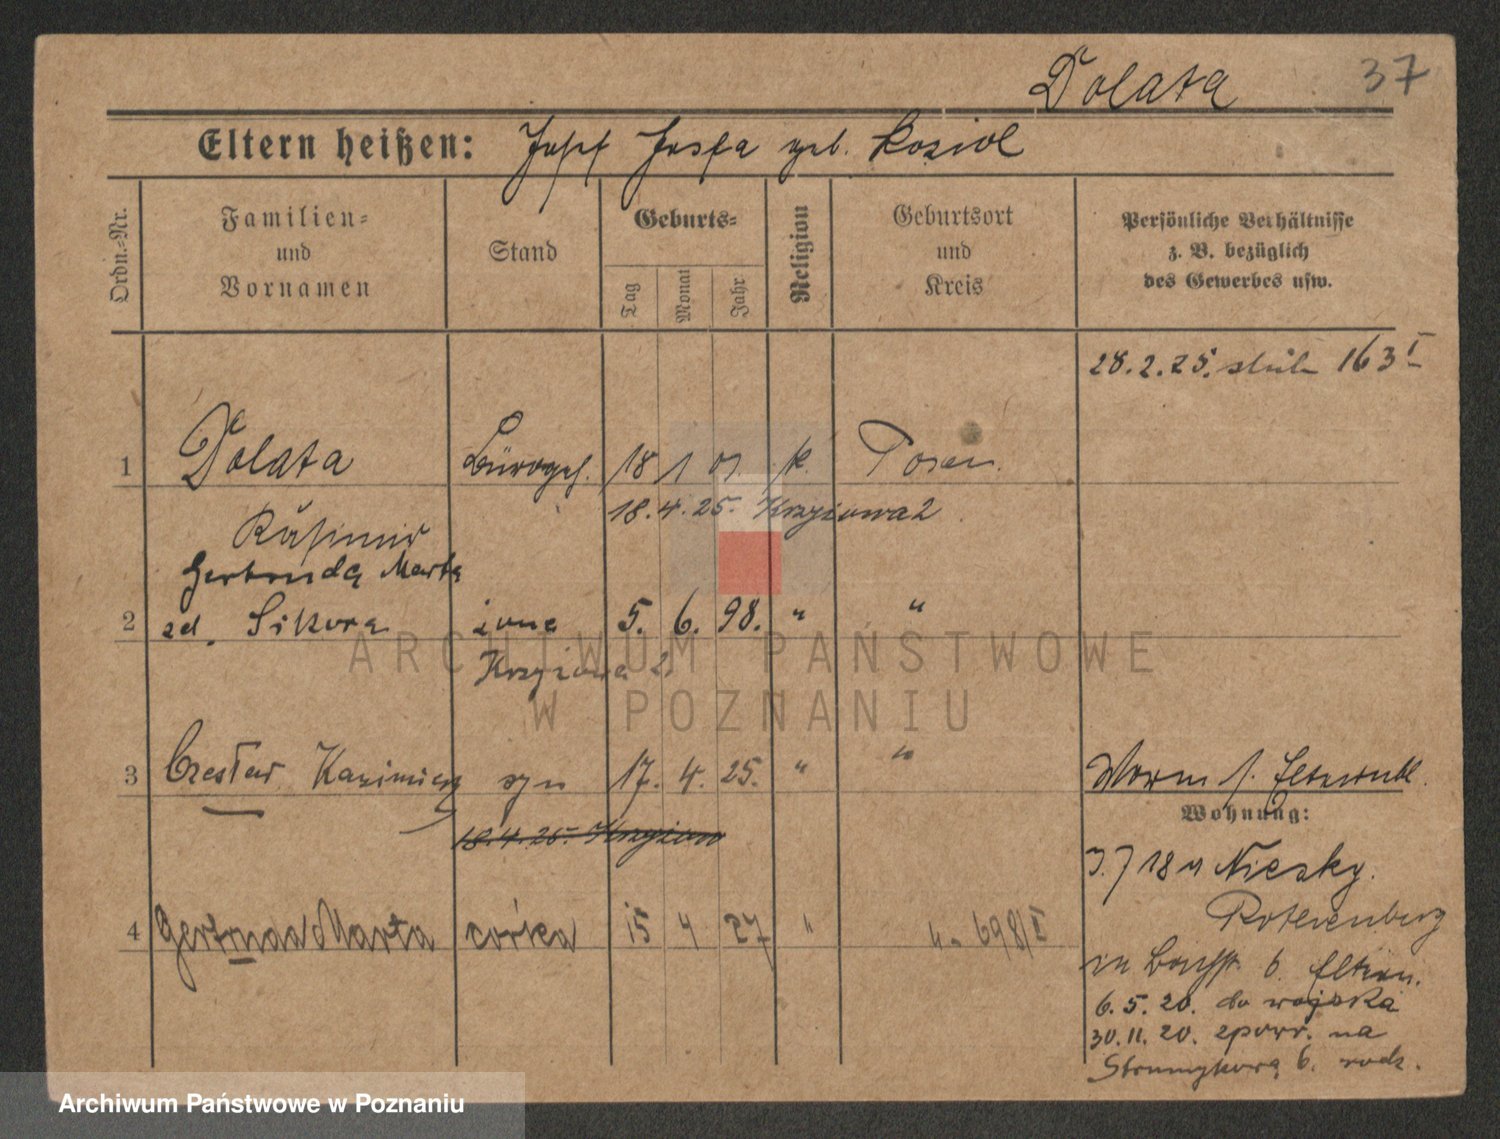 Dolata 37
Eltern heißen: Josef Josefa geb. Koziol
Ordn.-Nr.
Familien-
und
Vornamen
Stand
Geburts-
Tag
Monat
Jahr
Religion
Geburtsort
und
Kreis
Persönliche Verhältnisse
z. B. bezüglich
des Gewerbes usw.
28.2.25. 163 I
1 Dolata Bürogeh. 18 1 01. k. Posen.
Kasimir 18.4.25. Krzyżowa 2
Gertruda Marta
2 zd. Sikora żona 5. 6. 98. " "
Krzyżowa 2.
3 Czesław Kazimierz syn 17. 4. 25. " "
18.4.25. Krzyżow
4 Gertruda Marta córka 15 4 27 " u. 698/II
Wohnung:
18 Niesky.
Rothenburg
in b. Eltern.
6.5.20. do wojska
30.11.20. zpowr. na
Strumykową 6. rodz.
ARCHIWUM PAŃSTWOWE
W POZNANIU
Archiwum Państwowe w Poznaniu